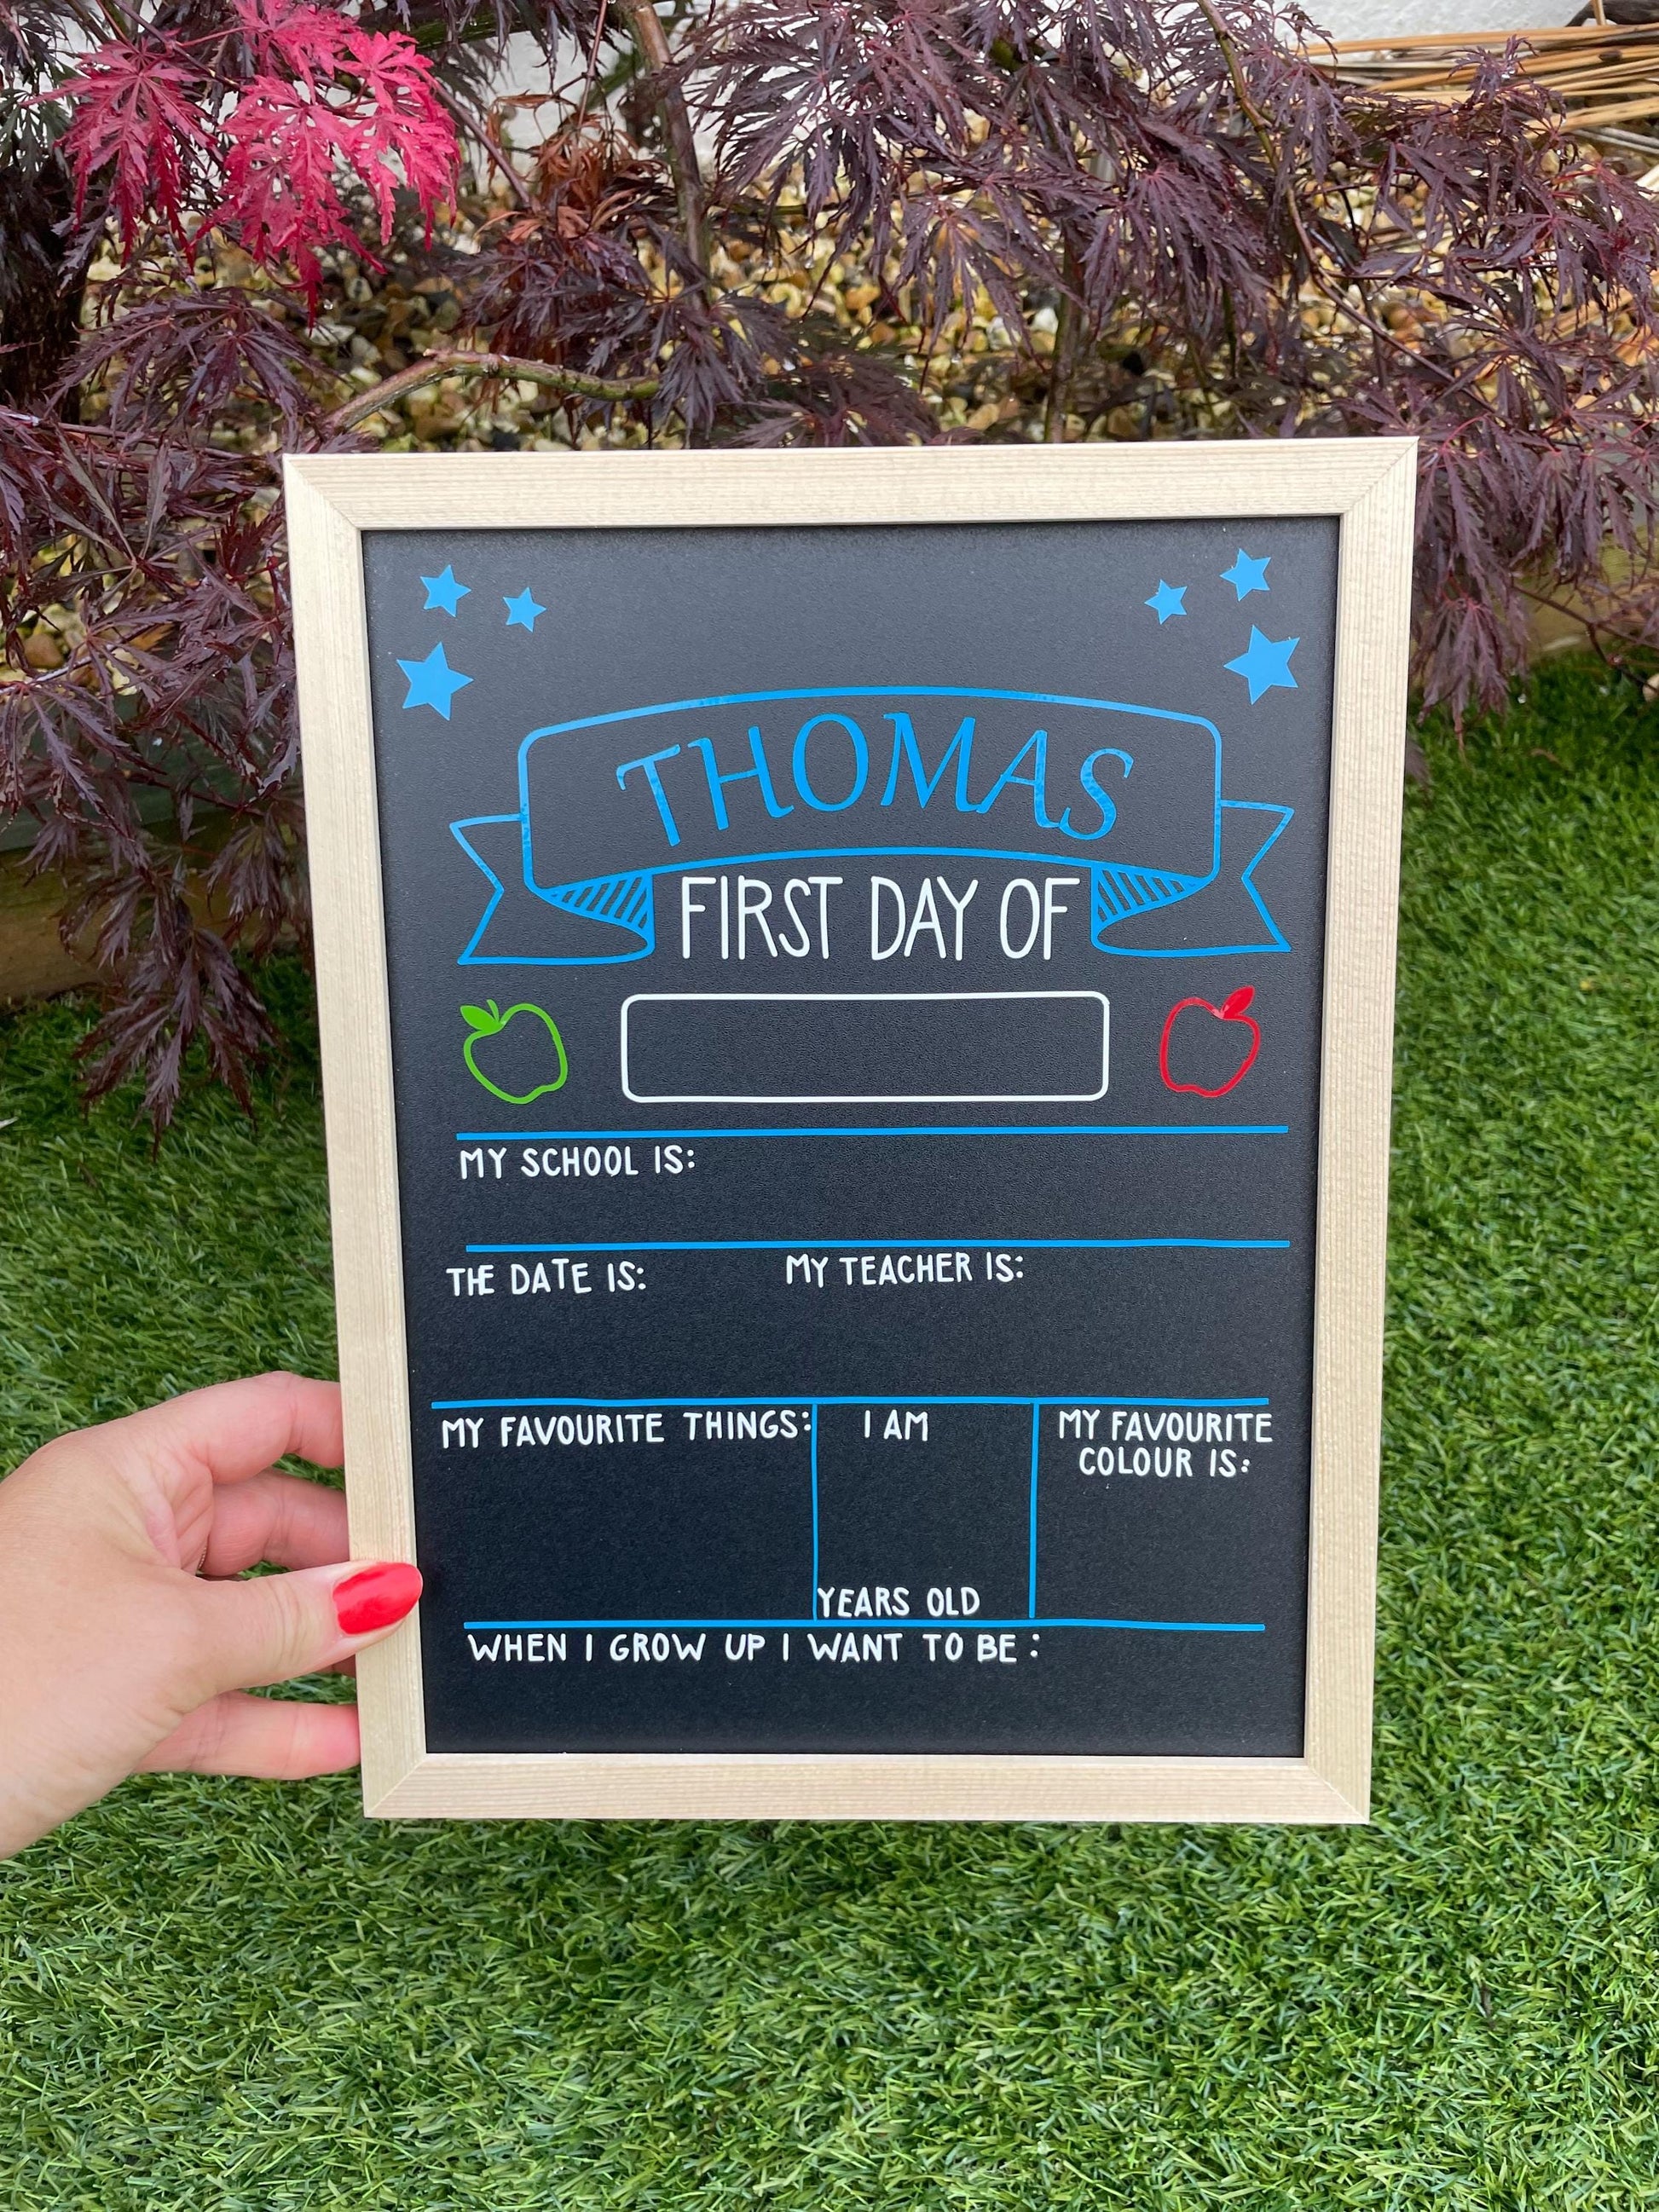 THOMAS
FIRST DAY OF
MY SCHOOL IS:
THE DATE IS: MY TEACHER IS:
MY FAVOURITE THINGS:
I AM
YEARS OLD
MY FAVOURITE
COLOUR IS:
WHEN I GROW UP I WANT TO BE :